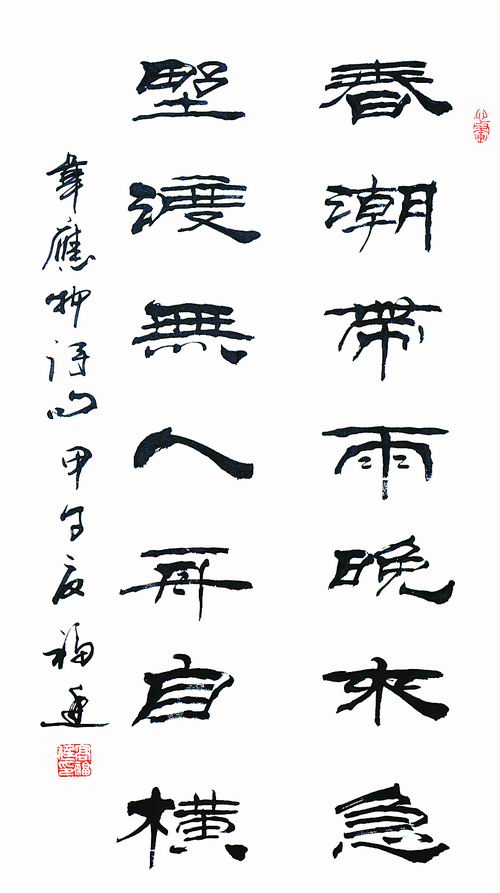 春潮帶雨晚來急
野渡無人舟自橫
韋應物詩句甲午夏福